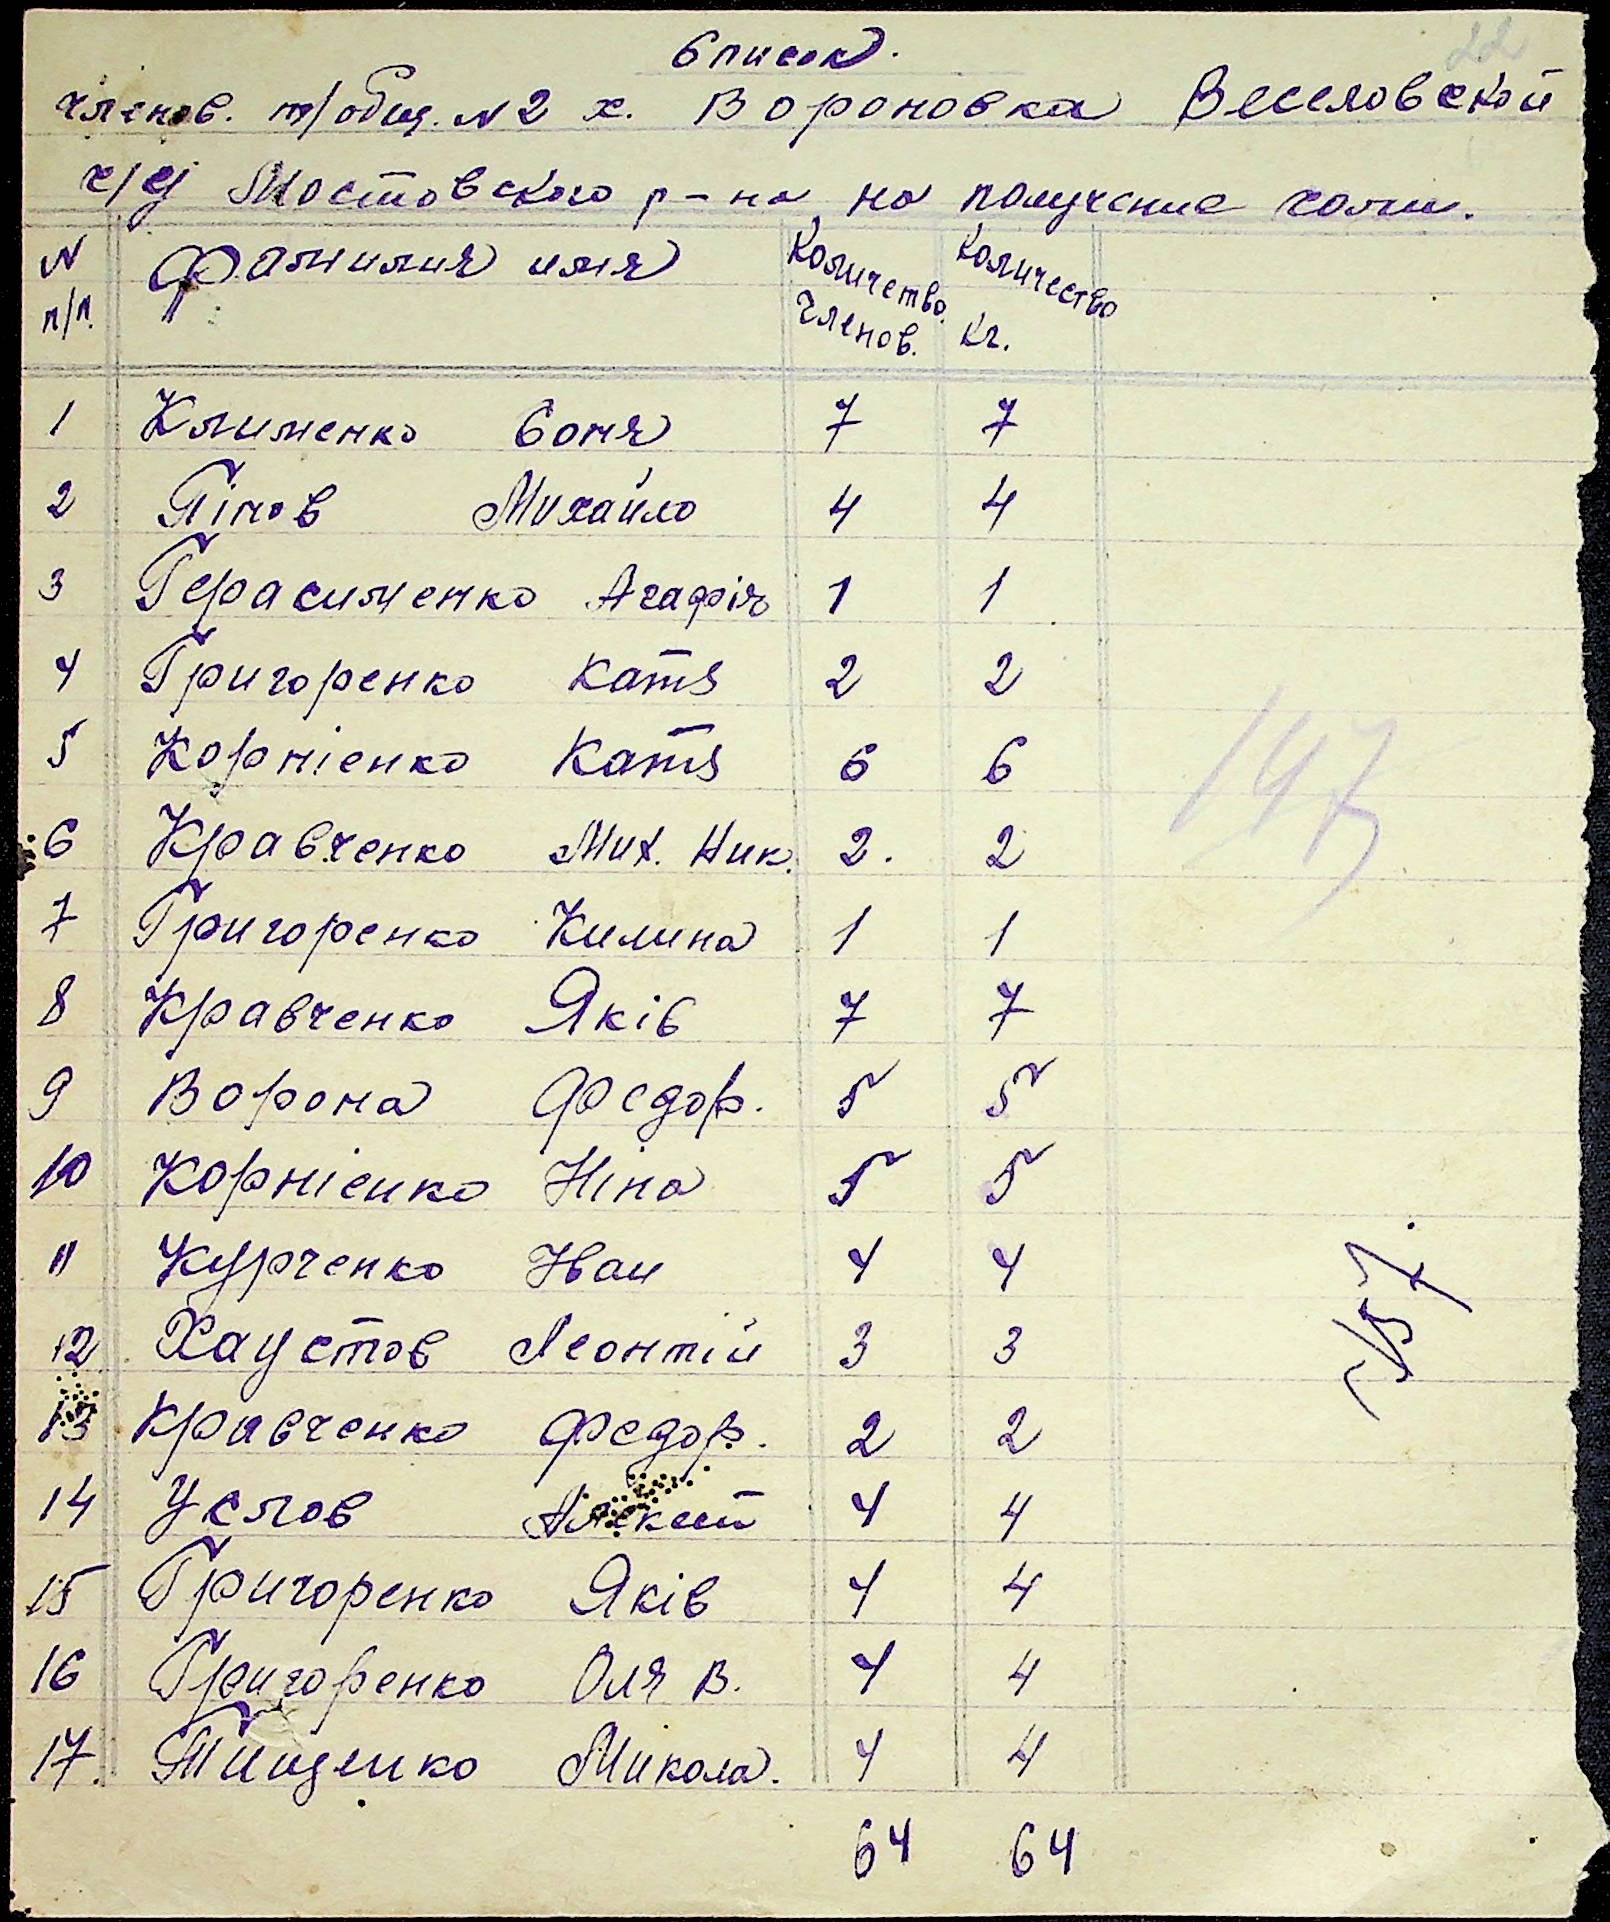 22
Список.
членов. т/общ. N2 х. Вороновка Веселовской
с/у Мостовского р-на на получение соли.
N п/п. Фамилия имя Количетво. членов. Количество кг.
1 Клименко Соня 7 7
2 Пінов Михайло 4 4
3 Герасименко Агафія 1 1
4 Григоренко Катя 2 2
5 Корнієнко Катя 6 6
6 Кравченко Мих. Ник. 2. 2
7 Григоренко Килина 1 1
8 Кравченко Яків 7 7
9 Ворона Федор. 5 5
10 Корнієнко Ніна 5 5
11 Курченко Иван 4 4
12 Хаустов Леонтій 3 3
13 Кравченко Федор. 2 2
14 Услов Алексей 4 4
15 Григоренко Яків 4 4
16 Григоренко Оля В. 4 4
17. Тищенко Микола. 4 4
64 64
147